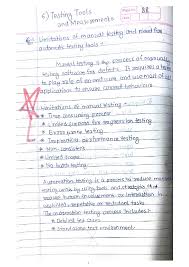 5) Testing Tools
and Measurements
88
Limitations of manual testing and need for
automate testing tools :
Manual testing is the process of manually
testing software for defects. It requires a tester
to play role of an end user and use most of all
application to ensure correct behaviour.
Limitations of manual testing -
Time consuming process
Limited support for regression testing
Expensive testing
Impractical performance testing
Non-consistent
Limited scope
No batch testing
Automation testing is a process to reduce
testing work by using tools and strategies to
reduce human involvement or interaction in
repetitive or redundant tasks
The automation testing process includes:
Detailed test cases
Stand alone test environment